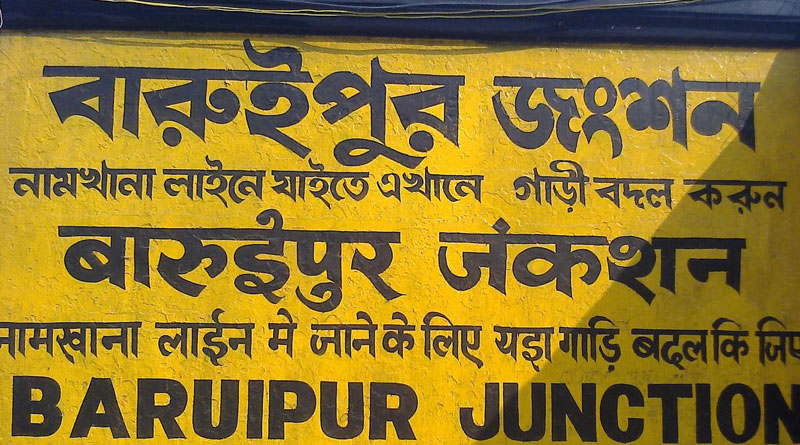 বারুইপুর জংশন
নামখানা লাইনে যাইতে এখানে গাড়ী বদল করুন
बारुईपुर जंकशन
नामखाना लाईन मे जाने के लिए यहा गाड़ि बदल कि जिए
BARUIPUR JUNCTION